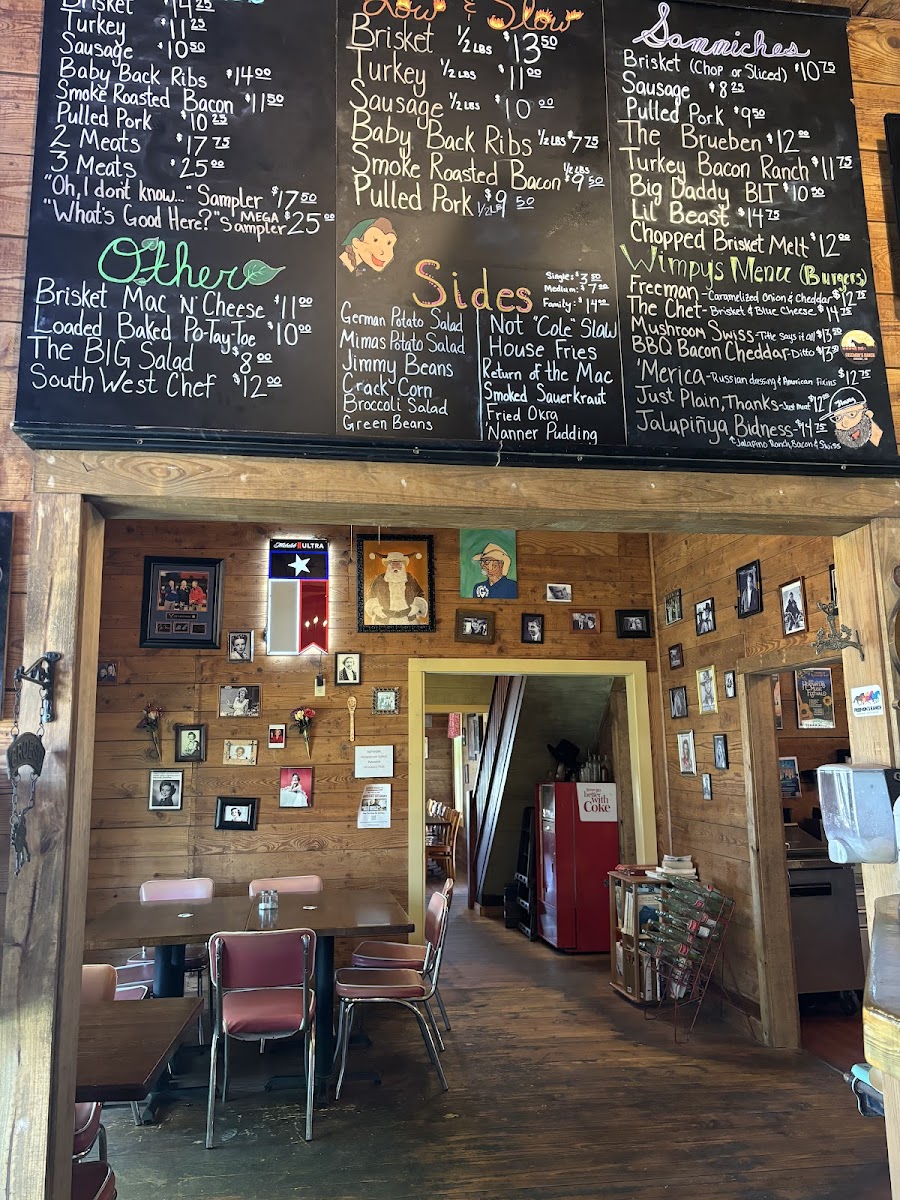 Brisket $14 25
Turkey $11 25
Sausage $10 50
Baby Back Ribs $14 00
Smoke Roasted Bacon $11 50
Pulled Pork $10 25
2 Meats $17 75
3 Meats $25 00
"Oh, I don't know..." Sampler $17 50
"What's Good Here?"s MEGA Sampler $25 00
Other
Brisket Mac N' Cheese $11 00
Loaded Baked Po-Tay-Toe $10 00
The BIG Salad $8 00
South West Chef $12 00
Low & Slow
Brisket 1/2 LBS $13 50
Turkey 1/2 LBS $11 00
Sausage 1/2 LBS $10 00
Baby Back Ribs 1/2 LBS $7 75
Smoke Roasted Bacon 1/2 LBS $9 50
Pulled Pork 1/2 LB $9 50
Sides
Single: $3 50
Medium: $7 00
Family: $14 00
German Potato Salad
Mimas Potato Salad
Jimmy Beans
Crack Corn
Broccoli Salad
Green Beans
Not "Cole" Slaw
House Fries
Return of the Mac
Smoked Sauerkraut
Fried Okra
'Nanner Pudding
Sammiches
Brisket (Chop or Sliced) $10 75
Sausage $8 25
Pulled Pork $9 50
The Brueben $12 00
Turkey Bacon Ranch $11 75
Big Daddy BLT $10 50
Lil' Beast $14 75
Chopped Brisket Melt $12 00
Wimpys Menu (Burgers)
Freeman - Caramelized Onion & Cheddar $12 75
The Chet - Brisket & Blue Cheese $14 75
Mushroom Swiss - Title says it all $13 50
BBQ Bacon Cheddar - Ditto $13 50
'Merica - Russian dressing & American fixins $12 75
Just Plain, Thanks - Just Meat $12
Jalupiñya Bidness - $14 75
Jalapino Ranch, Bacon & Swiss
Michelob ULTRA
better
with
Coke